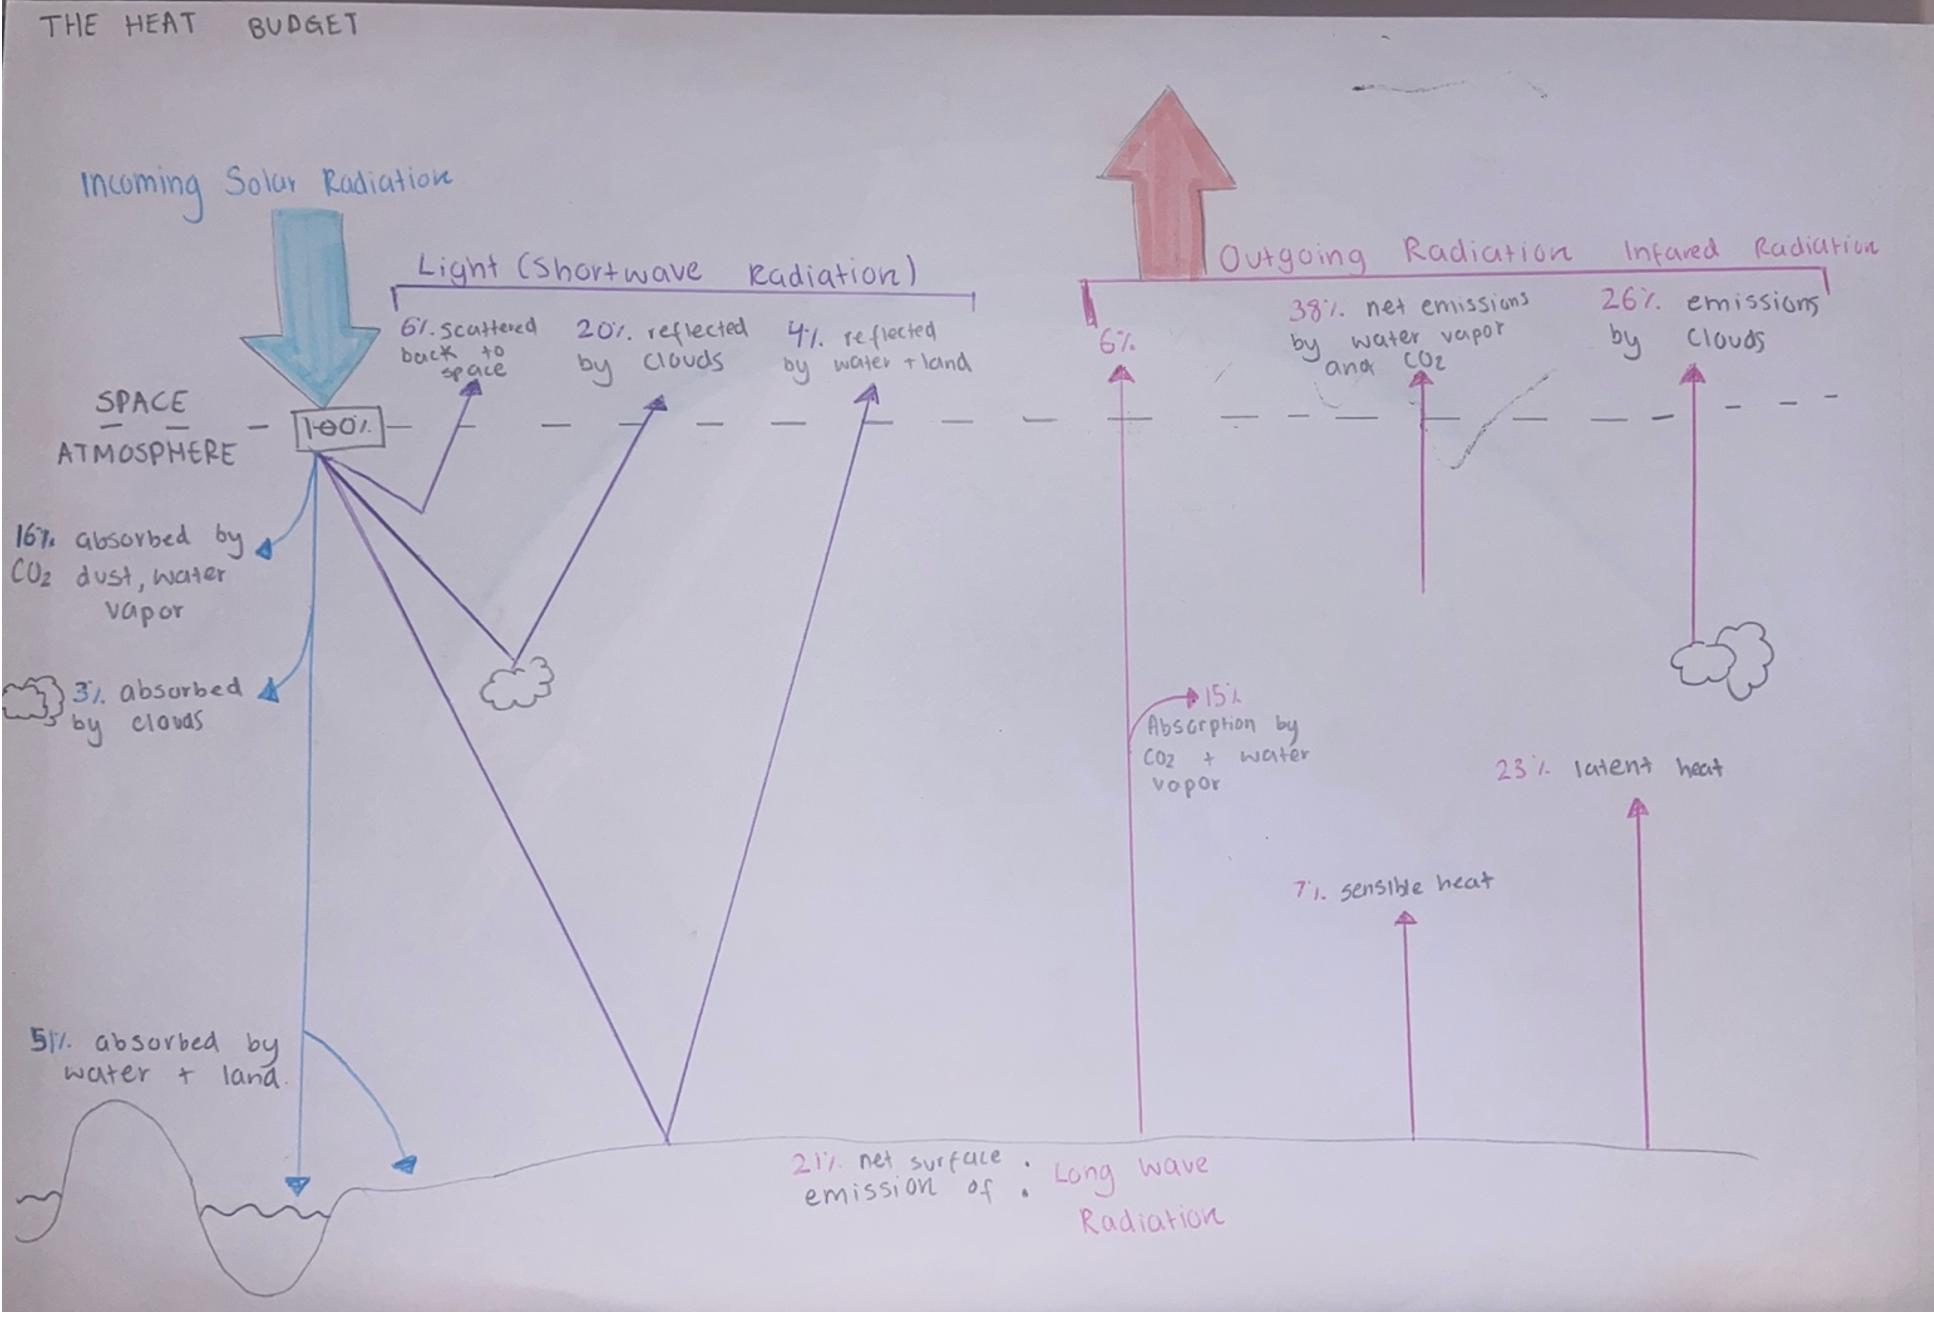 THE HEAT BUDGET
Incoming Solar Radiation
Light (Shortwave Radiation)
6% scattered
back to
space
20% reflected
by clouds
4% reflected
by water + land
Outgoing Radiation Infared Radiation
6%
38% net emissions
by water vapor
and CO2
26% emissions
by clouds
SPACE
ATMOSPHERE
100%
16% absorbed by
CO2 dust, water
vapor
3% absorbed
by clouds
15%
Absorption by
CO2 + water
vapor
23% latent heat
7% sensible heat
51% absorbed by
water + land.
21% net surface
emission of :
Long wave
Radiation